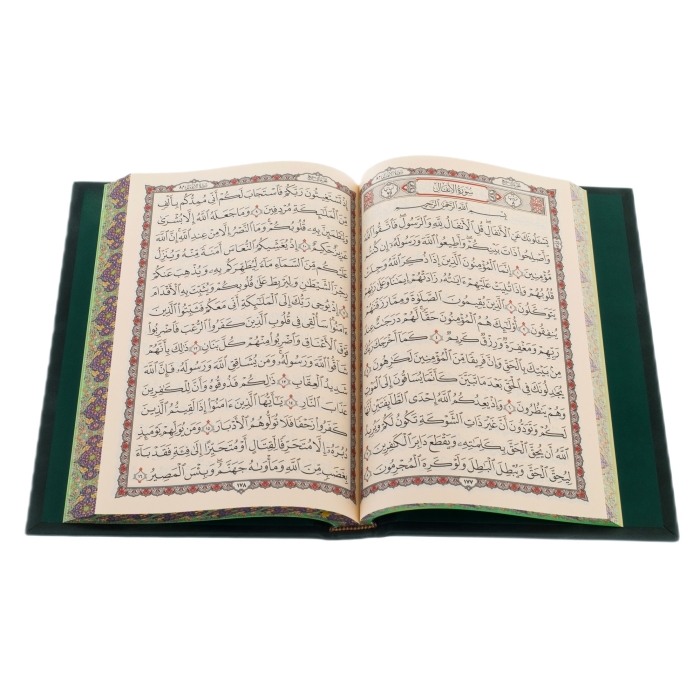 سُورَةُ الْأَنْفَالِ
بِسْمِ اللَّهِ الرَّحْمَٰنِ الرَّحِيمِ
يَسْـَٔلُونَكَ عَنِ ٱلْأَنفَالِ قُلِ ٱلْأَنفَالُ لِلَّهِ وَٱلرَّسُولِ فَٱتَّقُوا۟ ٱللَّهَ
وَأَصْلِحُوا۟ ذَاتَ بَيْنِكُمْ وَأَطِيعُوا۟ ٱللَّهَ وَرَسُولَهُۥٓ إِن كُنتُم
مُّؤْمِنِينَ ﴿١﴾ إِنَّمَا ٱلْمُؤْمِنُونَ ٱلَّذِينَ إِذَا ذُكِرَ ٱللَّهُ وَجِلَتْ
قُلُوبُهُمْ وَإِذَا تُلِيَتْ عَلَيْهِمْ ءَايَٰتُهُۥ زَادَتْهُمْ إِيمَٰنًا وَعَلَىٰ رَبِّهِمْ
يَتَوَكَّلُونَ ﴿٢﴾ ٱلَّذِينَ يُقِيمُونَ ٱلصَّلَوٰةَ وَمِمَّا رَزَقْنَٰهُمْ
يُنفِقُونَ ﴿٣﴾ أُو۟لَٰٓئِكَ هُمُ ٱلْمُؤْمِنُونَ حَقًّا لَّهُمْ دَرَجَٰتٌ عِندَ
رَبِّهِمْ وَمَغْفِرَةٌ وَرِزْقٌ كَرِيمٌ ﴿٤﴾ كَمَآ أَخْرَجَكَ رَبُّكَ
مِنۢ بَيْتِكَ بِٱلْحَقِّ وَإِنَّ فَرِيقًا مِّنَ ٱلْمُؤْمِنِينَ لَكَٰرِهُونَ ﴿٥﴾
يُجَٰدِلُونَكَ فِى ٱلْحَقِّ بَعْدَ مَا تَبَيَّنَ كَأَنَّمَا يُسَاقُونَ إِلَى ٱلْمَوْتِ
وَهُمْ يَنظُرُونَ ﴿٦﴾ وَإِذْ يَعِدُكُمُ ٱللَّهُ إِحْدَى ٱلطَّآئِفَتَيْنِ أَنَّهَا
لَكُمْ وَتَوَدُّونَ أَنَّ غَيْرَ ذَاتِ ٱلشَّوْكَةِ تَكُونُ لَكُمْ وَيُرِيدُ
ٱللَّهُ أَن يُحِقَّ ٱلْحَقَّ بِكَلِمَٰتِهِۦ وَيَقْطَعَ دَابِرَ ٱلْكَٰفِرِينَ ﴿٧﴾
لِيُحِقَّ ٱلْحَقَّ وَيُبْطِلَ ٱلْبَٰطِلَ وَلَوْ كَرِهَ ٱلْمُجْرِمُونَ ﴿٨﴾
١٧٧
إِذْ تَسْتَغِيثُونَ رَبَّكُمْ فَٱسْتَجَابَ لَكُمْ أَنِّى مُمِدُّكُم بِأَلْفٍ
مِّنَ ٱلْمَلَٰٓئِكَةِ مُرْدِفِينَ ﴿٩﴾ وَمَا جَعَلَهُ ٱللَّهُ إِلَّا بُشْرَىٰ
وَلِتَطْمَئِنَّ بِهِۦ قُلُوبُكُمْ وَمَا ٱلنَّصْرُ إِلَّا مِنْ عِندِ ٱللَّهِ إِنَّ ٱللَّهَ
عَزِيزٌ حَكِيمٌ ﴿١٠﴾ إِذْ يُغَشِّيكُمُ ٱلنُّعَاسَ أَمَنَةً مِّنْهُ وَيُنَزِّلُ
عَلَيْكُم مِّنَ ٱلسَّمَآءِ مَآءً لِّيُطَهِّرَكُم بِهِۦ وَيُذْهِبَ عَنكُمْ
رِجْزَ ٱلشَّيْطَٰنِ وَلِيَرْبِطَ عَلَىٰ قُلُوبِكُمْ وَيُثَبِّتَ بِهِ ٱلْأَقْدَامَ
﴿١١﴾ إِذْ يُوحِى رَبُّكَ إِلَى ٱلْمَلَٰٓئِكَةِ أَنِّى مَعَكُمْ فَثَبِّتُوا۟ ٱلَّذِينَ
ءَامَنُوا۟ سَأُلْقِى فِى قُلُوبِ ٱلَّذِينَ كَفَرُوا۟ ٱلرُّعْبَ فَٱضْرِبُوا۟
فَوْقَ ٱلْأَعْنَاقِ وَٱضْرِبُوا۟ مِنْهُمْ كُلَّ بَنَانٍ ﴿١٢﴾ ذَٰلِكَ بِأَنَّهُمْ
شَآقُّوا۟ ٱللَّهَ وَرَسُولَهُۥ وَمَن يُشَاقِقِ ٱللَّهَ وَرَسُولَهُۥ فَإِنَّ ٱللَّهَ
شَدِيدُ ٱلْعِقَابِ ﴿١٣﴾ ذَٰلِكُمْ فَذُوقُوهُ وَأَنَّ لِلْكَٰفِرِينَ
عَذَابَ ٱلنَّارِ ﴿١٤﴾ يَٰٓأَيُّهَا ٱلَّذِينَ ءَامَنُوٓا۟ إِذَا لَقِيتُمُ ٱلَّذِينَ
كَفَرُوا۟ زَحْفًا فَلَا تُوَلُّوهُمُ ٱلْأَدْبَارَ ﴿١٥﴾ وَمَن يُوَلِّهِمْ يَوْمَئِذٍ
دُبُرَهُۥٓ إِلَّا مُتَحَرِّفًا لِّقِتَالٍ أَوْ مُتَحَيِّزًا إِلَىٰ فِئَةٍ فَقَدْ بَآءَ
بِغَضَبٍ مِّنَ ٱللَّهِ وَمَأْوَىٰهُ جَهَنَّمُ وَبِئْسَ ٱلْمَصِيرُ ﴿١٦﴾
١٧٨